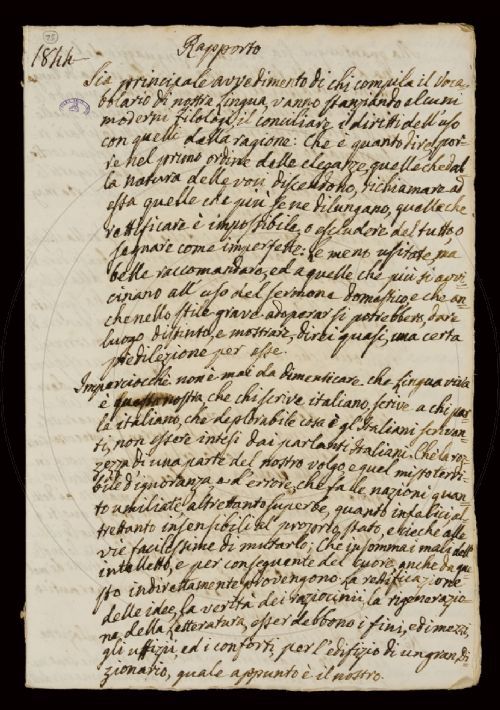 75
1844
Rapporto
Sia principale avvedimento di chi compila il Voca-
bolario di nostra Lingua, vanno stanziando alcuni
moderni filologi, il conciliare i diritti dell'uso
con quelli della ragione: Che è quanto dire, por-
re nel primo ordine delle eleganze, quelle che dal
la natura delle voci discendono, richiamare ad
essa quelle che più se ne dilungano, quelle che
rettificare è impossibile, o escludere del tutto, o
segnare come imperfette: le meno usitate, ma
belle raccomandare, ed a quelle che più si avvi-
cinano all'uso del sermone domestico, e che an-
che nello stile grave adoperar si potrebbero, dare
luogo distinto, e mostrare, direi quasi, una certa
predilezione per esse.
Imperciocchè non è mai da dimenticare che Lingua viva
è questa nostra che chi scrive italiano, scrive a chi par-
la italiano, che deplorabile cosa è gl'Italiani scriven-
ti, non essere intesi dai parlanti Italiani. Che la roz-
zezza di una parte del nostro volgo, e quel misto terri-
bile d'ignoranza e d'errore, che fa le nazioni quan-
to umiliate altrettanto superbe, quanto infelici al-
trettanto insensibili al proprio stato, e cieche alle
vie facilissime di mutarlo; Che insomma i mali dell'
intelletto, e per conseguente del cuore, anche da que-
sto indirettamente provengono. La rettificazione
delle idee, la verità dei raziocinii, la rigenerazio-
ne della Letteratura, esser debbono i fini, ed i mezzi,
gli uffizii, ed i conforti, per l'edifizio di un gran Di-
zionario, quale appunto è il nostro.